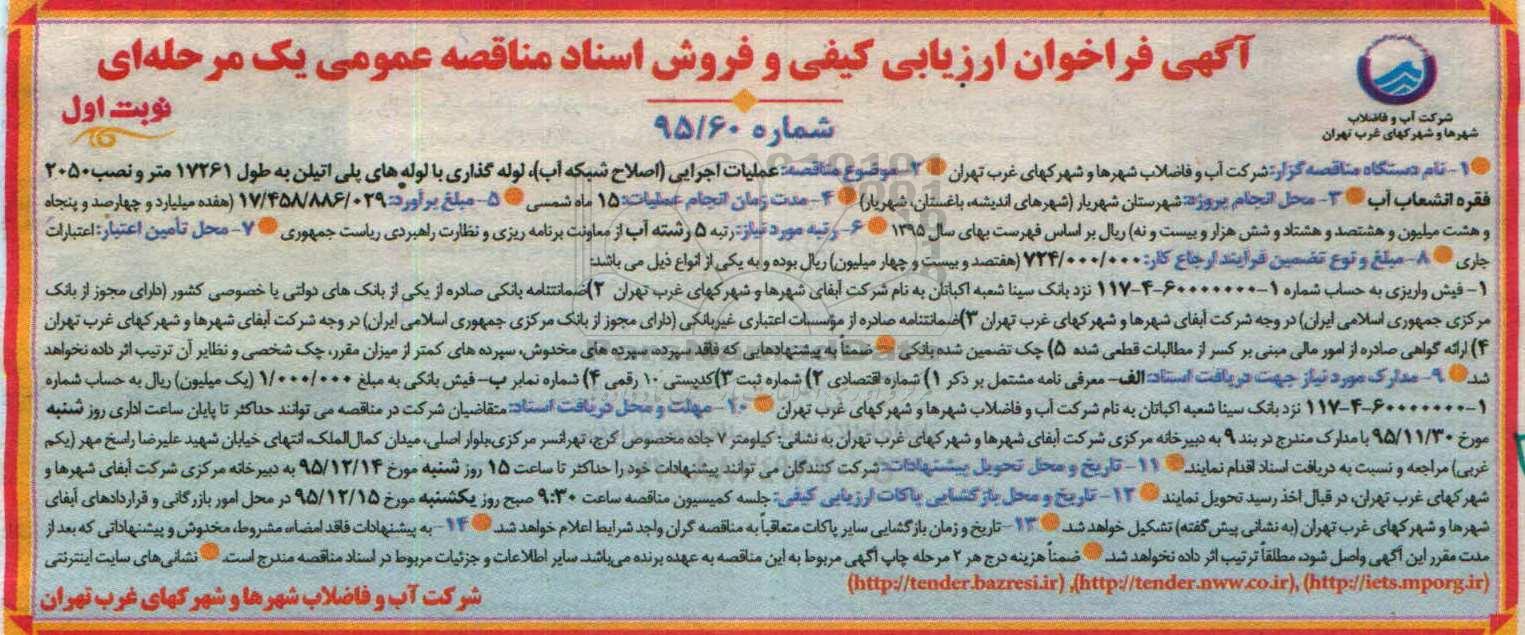 آگهی فراخوان ارزیابی کیفی و فروش اسناد مناقصه عمومی یک مرحله‌ای
شرکت آب و فاضلاب
شهرها و شهرکهای غرب تهران
نوبت اول
شماره ۹۵/۶۰
۱- نام دستگاه مناقصه گزار: شرکت آب و فاضلاب شهرها و شهرکهای غرب تهران ۲- موضوع مناقصه: عملیات اجرایی (اصلاح شبکه آب)، لوله گذاری با لوله های پلی اتیلن به طول ۱۷۲۶۱ متر و نصب ۲۰۵۰
فقره انشعاب آب ۳- محل انجام پروژه: شهرستان شهریار (شهرهای اندیشه، باغستان، شهریار) ۴- مدت زمان انجام عملیات: ۱۵ ماه شمسی ۵- مبلغ برآورد: ۱۷/۴۵۸/۸۸۶/۰۲۹ (هفده میلیارد و چهارصد و پنجاه
و هشت میلیون و هشتصد و هشتاد و شش هزار و بیست و نه) ریال بر اساس فهرست بهای سال ۱۳۹۵ ۶- رتبه مورد نیاز: رتبه ۵ رشته آب از معاونت برنامه ریزی و نظارت راهبردی ریاست جمهوری ۷- محل تأمین اعتبار: اعتبارات
جاری ۸- مبلغ و نوع تضمین فرآیند ارجاع کار: ۷۲۴/۰۰۰/۰۰۰ (هفتصد و بیست و چهار میلیون) ریال بوده و به یکی از انواع ذیل می باشد:
۱- فیش واریزی به حساب شماره ۱-۶۰۰۰۰۰۰۰-۴-۱۱۷ نزد بانک سینا شعبه اکباتان به نام شرکت آبفای شهرها و شهرکهای غرب تهران ۲)ضمانتنامه بانکی صادره از یکی از بانک های دولتی یا خصوصی کشور (دارای مجوز از بانک
مرکزی جمهوری اسلامی ایران) در وجه شرکت آبفای شهرها و شهرکهای غرب تهران ۳)ضمانتنامه صادره از مؤسسات اعتباری غیربانکی (دارای مجوز از بانک مرکزی جمهوری اسلامی ایران) در وجه شرکت آبفای شهرها و شهرکهای غرب تهران
۴) ارائه گواهی صادره از امور مالی مبنی بر کسر از مطالبات قطعی شده ۵) چک تضمین شده بانکی ضمناً به پیشنهادهایی که فاقد سپرده، سپرده های مخدوش، سپرده های کمتر از میزان مقرر، چک شخصی و نظایر آن ترتیب اثر داده نخواهد
شد. ۹- مدارک مورد نیاز جهت دریافت اسناد: الف- معرفی نامه مشتمل بر ذکر ۱) شماره اقتصادی ۲) شماره ثبت ۳)کدپستی ۱۰ رقمی ۴) شماره نمابر ب- فیش بانکی به مبلغ ۱/۰۰۰/۰۰۰ (یک میلیون) ریال به حساب شماره
۱-۶۰۰۰۰۰۰۰-۴-۱۱۷ نزد بانک سینا شعبه اکباتان به نام شرکت آب و فاضلاب شهرها و شهرکهای غرب تهران ۱۰- مهلت و محل دریافت اسناد: متقاضیان شرکت در مناقصه می توانند حداکثر تا پایان ساعت اداری روز شنبه
مورخ ۹۵/۱۱/۳۰ با مدارک مندرج در بند ۹ به دبیرخانه مرکزی شرکت آبفای شهرها و شهرکهای غرب تهران به نشانی: کیلومتر ۷ جاده مخصوص کرج، تهرانسر مرکزی،بلوار اصلی، میدان کمال‌الملک، انتهای خیابان شهید علیرضا راسخ مهر (یکم
غربی) مراجعه و نسبت به دریافت اسناد اقدام نمایند. ۱۱- تاریخ و محل تحویل پیشنهادات: شرکت کنندگان می توانند پیشنهادات خود را حداکثر تا ساعت ۱۵ روز شنبه مورخ ۹۵/۱۲/۱۴ به دبیرخانه مرکزی شرکت آبفای شهرها و
شهرکهای غرب تهران، در قبال اخذ رسید تحویل نمایند ۱۲- تاریخ و محل بازگشایی پاکات ارزیابی کیفی: جلسه کمیسیون مناقصه ساعت ۹:۳۰ صبح روز یکشنبه مورخ ۹۵/۱۲/۱۵ در محل امور بازرگانی و قراردادهای آبفای
شهرها و شهرکهای غرب تهران (به نشانی پیش‌گفته) تشکیل خواهد شد. ۱۳- تاریخ و زمان بازگشایی سایر پاکات متعاقباً به مناقصه گران واجد شرایط اعلام خواهد شد. ۱۴- به پیشنهادات فاقد امضاء، مشروط، مخدوش و پیشنهاداتی که بعد از
مدت مقرر این آگهی واصل شود، مطلقاً ترتیب اثر داده نخواهد شد. ضمناً هزینه درج هر ۲ مرحله چاپ آگهی مربوط به این مناقصه به عهده برنده می‌باشد. سایر اطلاعات و جزئیات مربوط در اسناد مناقصه مندرج است. نشانی‌های سایت اینترنتی
(http://tender.bazresi.ir) ,(http://tender.nww.co.ir), (http://iets.mporg.ir)
شرکت آب و فاضلاب شهرها و شهرکهای غرب تهران